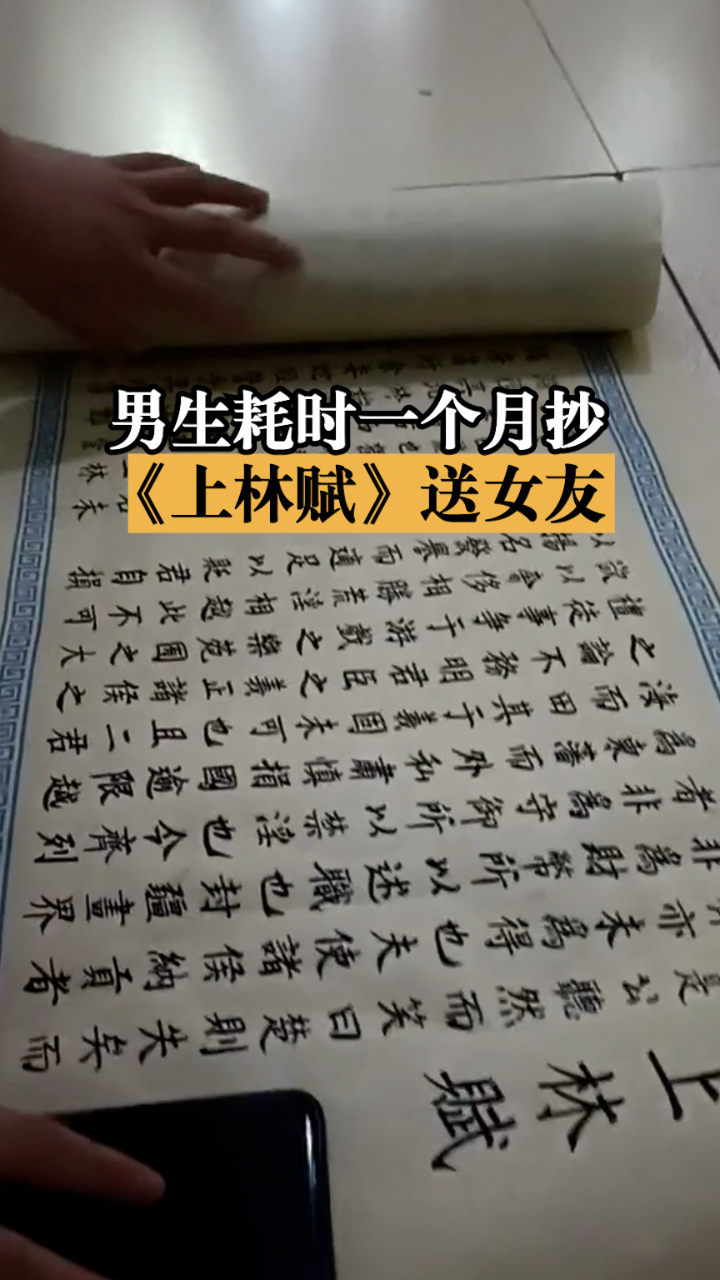 男生耗时一个月抄
《上林赋》送女友
上林賦
是公聽然而笑曰楚則失矣而
亦未為得也夫使諸侯納貢者
非為財幣所以述職也封疆畫界
者非為守御所以禁淫也今齊列
為東藩而外私肅慎捐國逾限越
而田其于義固未可也且二君
之論不務明君臣之義正諸侯之
禮徒事爭于游戲之樂苑囿之大
欲以奢侈相勝荒淫相越此不可
以揚名發譽而適足以貶君自損